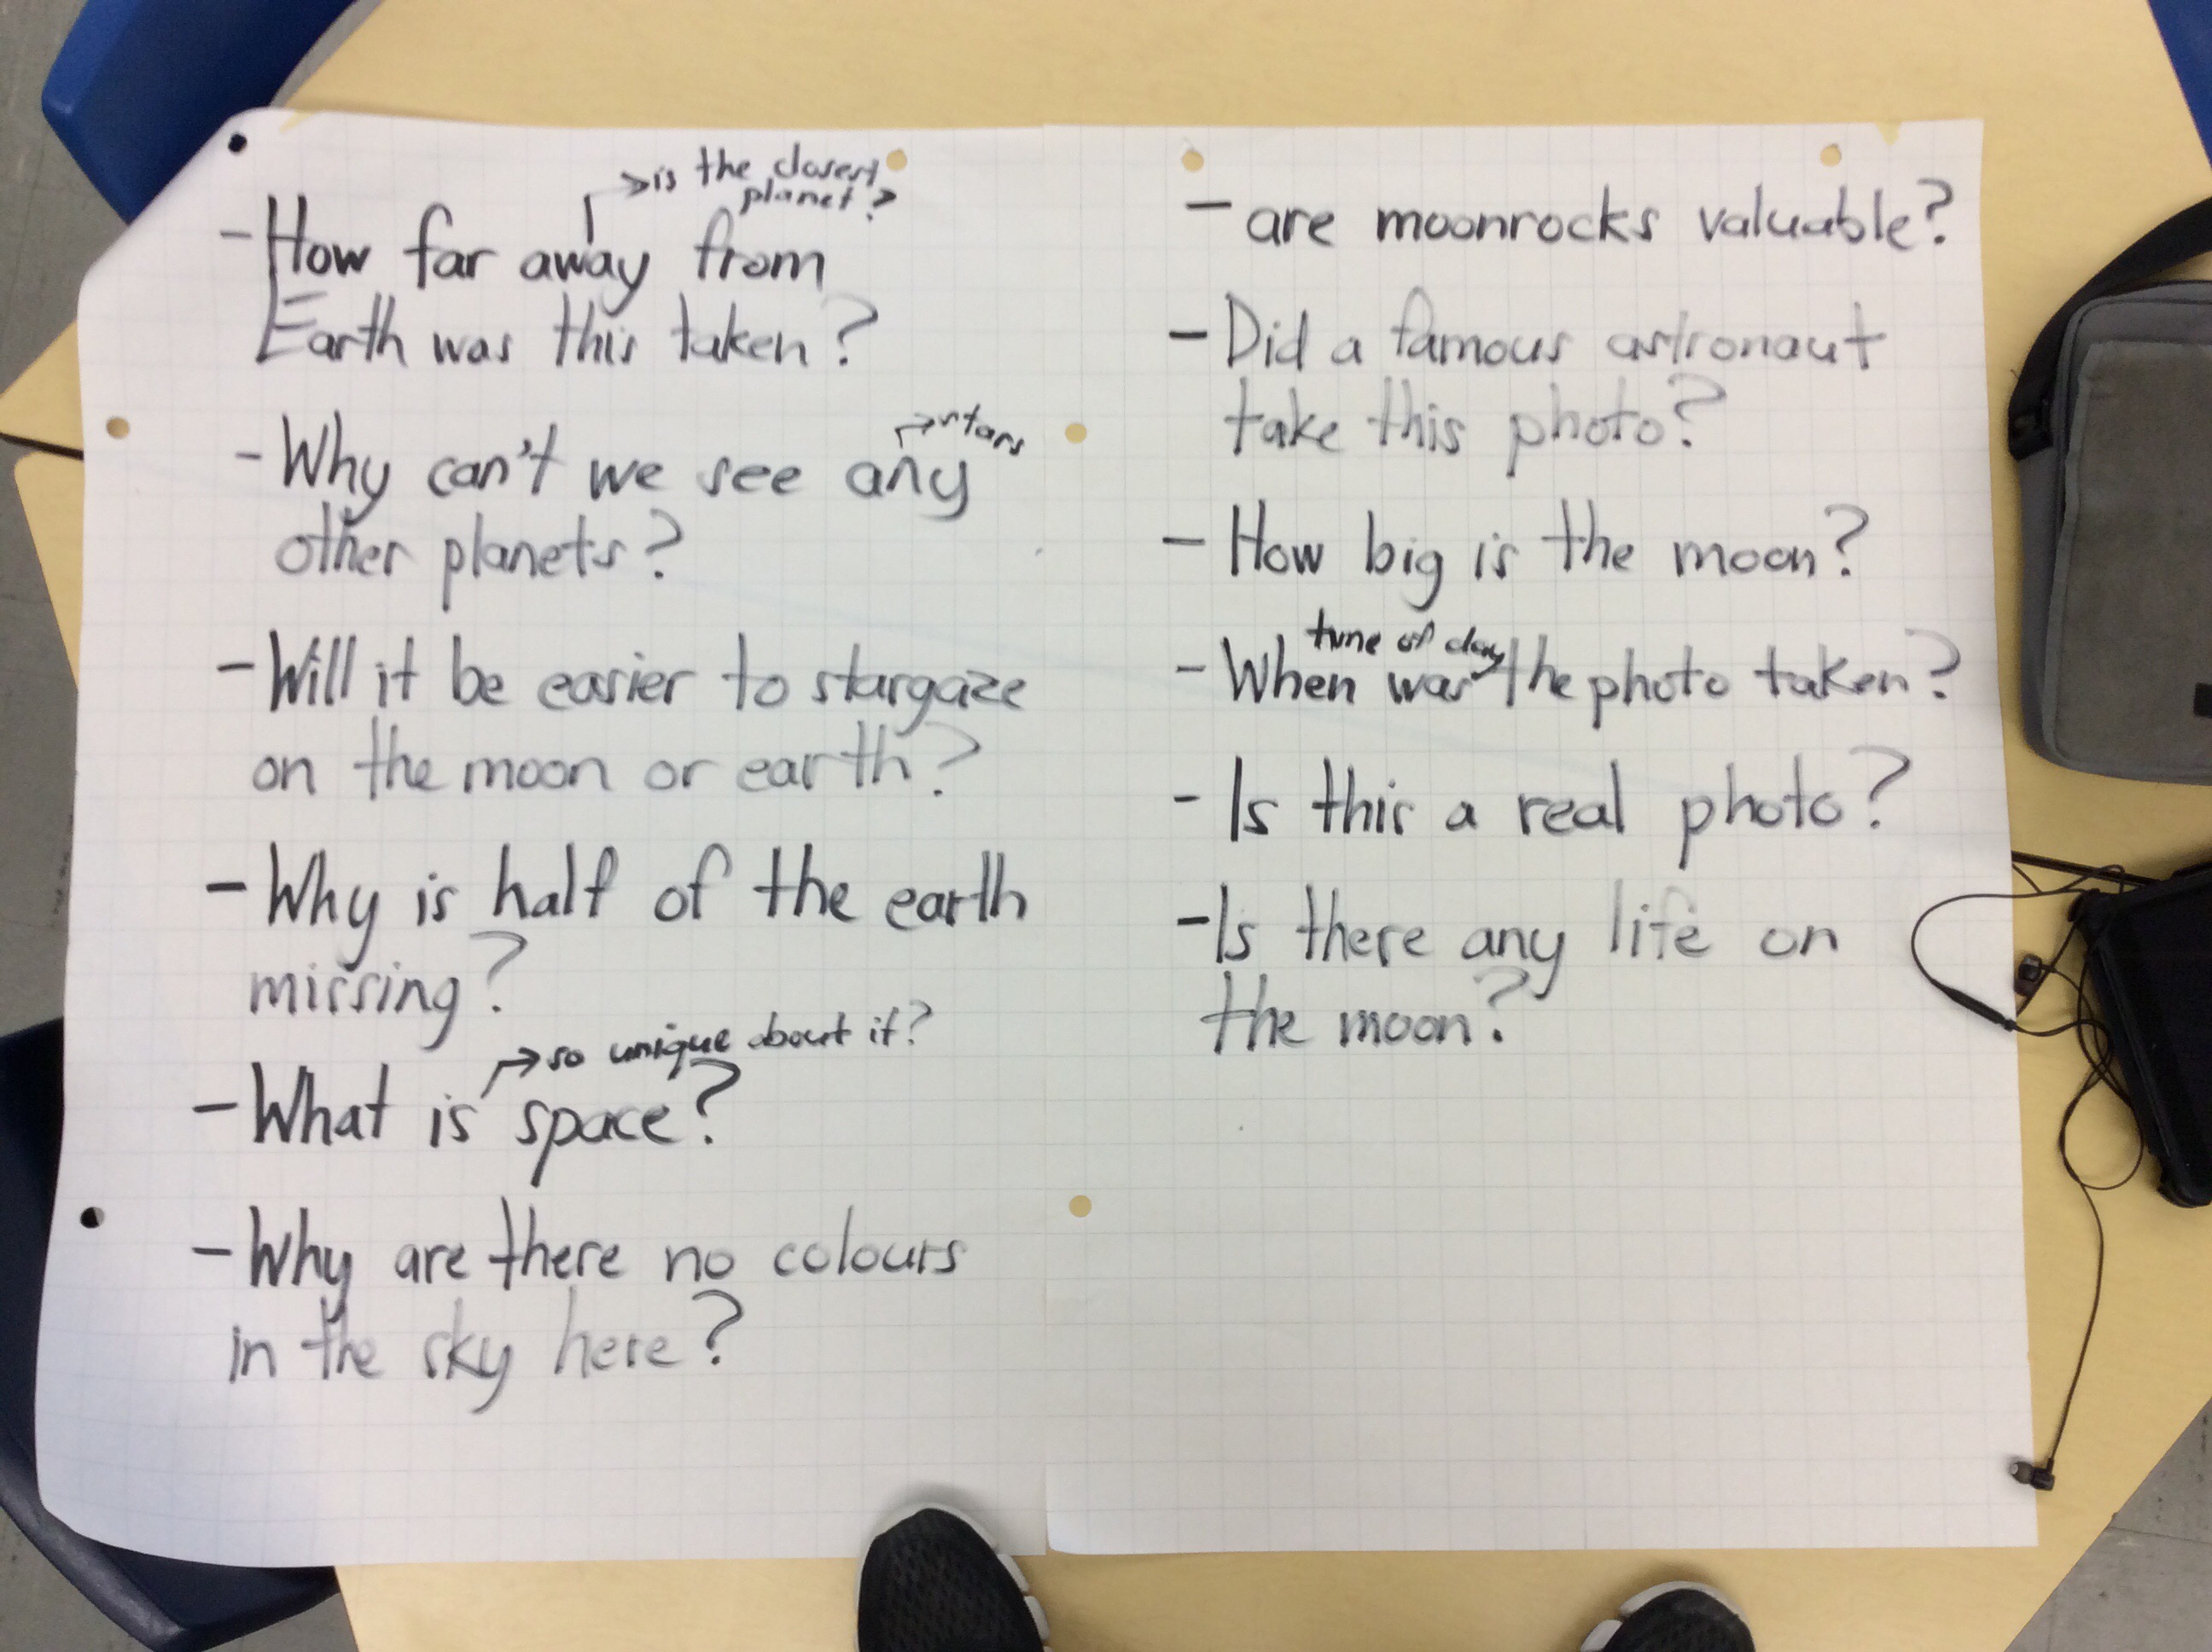 →is the closest
planet?
-How far away from
Earth was this taken?
→stars
-Why can't we see any
other planets?
-Will it be easier to stargaze
on the moon or earth?
-Why is half of the earth
missing?
→so unique about it?
-What is space?
-Why are there no colours
in the sky here?
-are moonrocks valuable?
-Did a famous astronaut
take this photo?
-How big is the moon?
time of day
-When was the photo taken?
-Is this a real photo?
-Is there any life on
the moon?